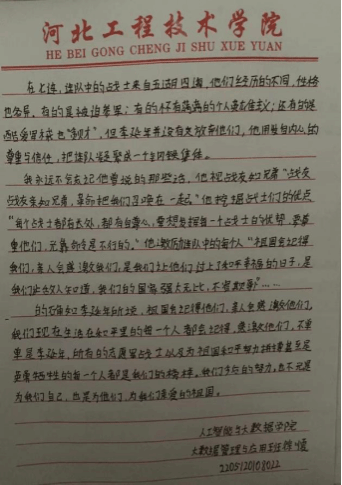 河北工程技术学院
HE BEI GONG CHENG JI SHU XUE YUAN
在七连，连队中的战士来自五湖四海，他们经历的不同，性格
也各异，有的是被迫参军；有的怀有满满的个人英雄主义；还有的
但李延年并没有放弃他们，他用发自内心的
尊重与信任，把连队凝聚成一个钢铁集体。
我永远不会忘记他曾说的那些话，他视战友如兄弟“战友
战友亲如兄弟，革命把我们召唤在一起”他挖掘战士们的优点
“每个战士都有长处，都有自尊心，要想发挥每一个战士的优势，要尊
重他们，光靠命令是不行的。”他激励连队中的每个人“祖国会记得
我们，亲人会感激我们，是我们让他们过上了和平幸福的日子，是
我们让敌人知道，我们的国家强大无比，不容欺辱”……
的确如李延年所说，祖国会记得他们，亲人会感激他们，
我们现在生活在和平里的每一个人都会记得，感激他们，不单
单是李延年，所有的志愿军战士以及为祖国和平努力拼搏甚至是
英勇牺牲的每一个人都是我们的榜样。我们今后的努力，也不光是
为我们自己，也是为他们，为我们亲爱的祖国。
人工智能与大数据学院
大数据管理与应用
220512018022